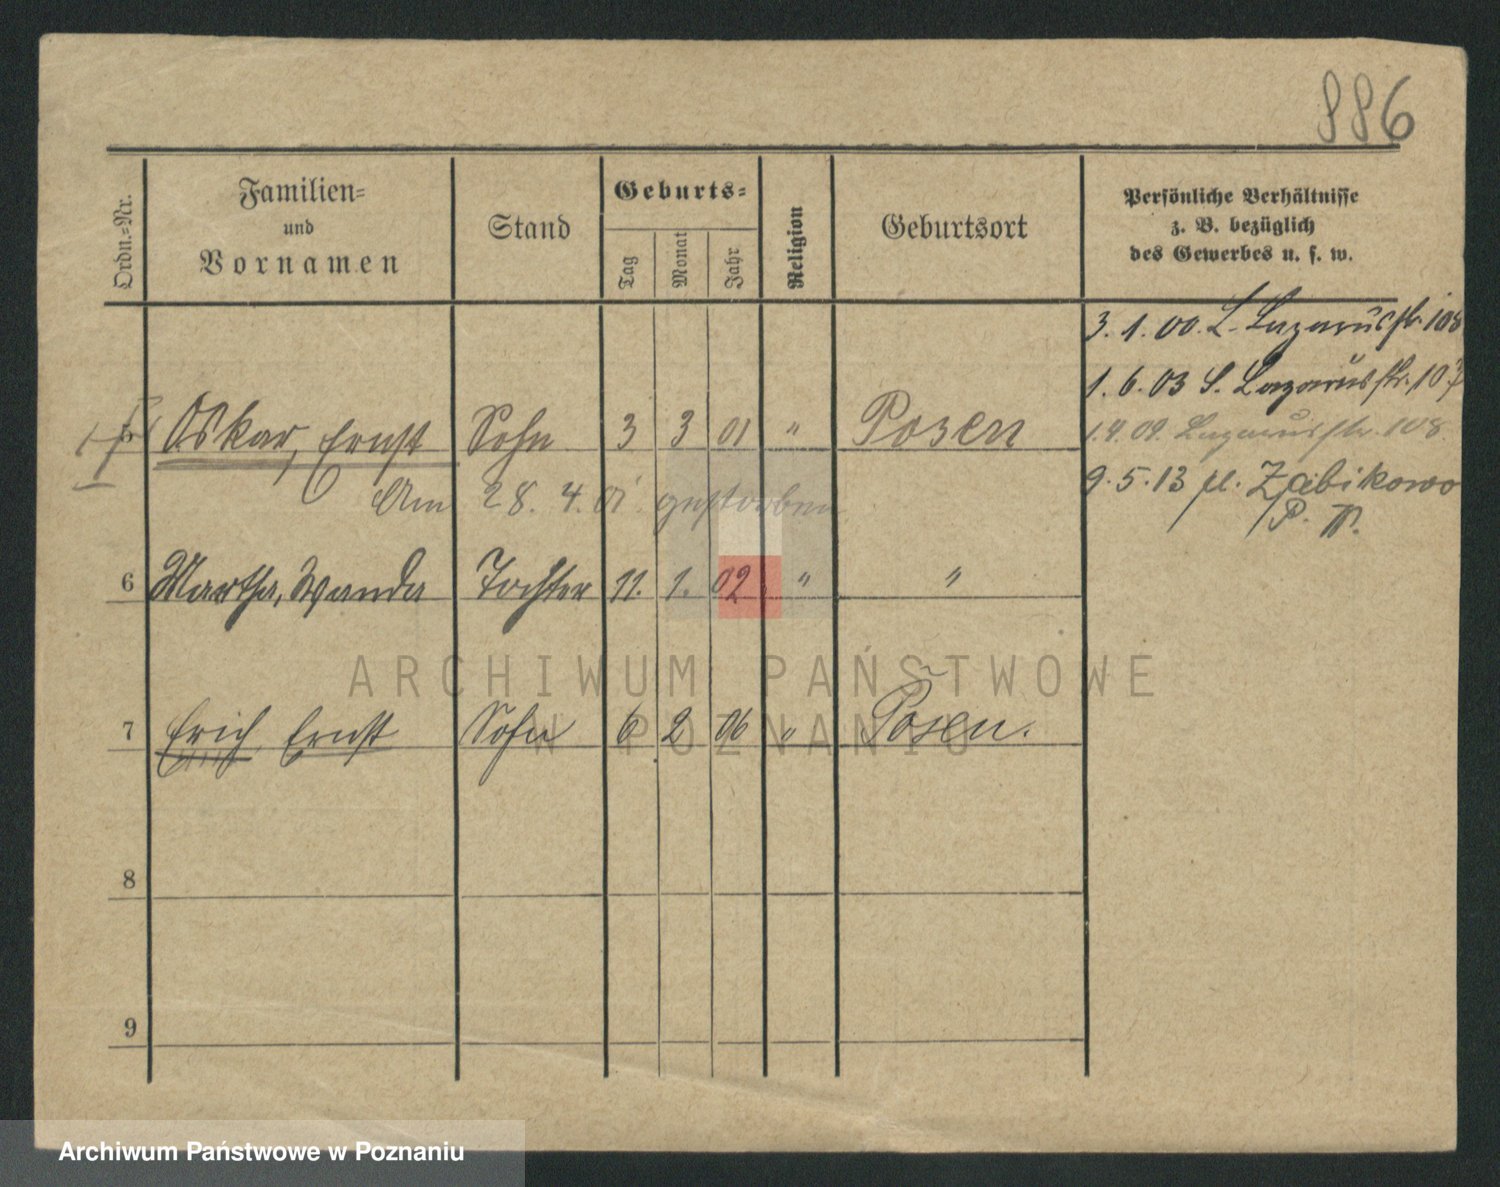 886
Ordn.-Nr.
Familien-
und
Vornamen
Stand
Geburts-
Tag
Monat
Jahr
Religion
Geburtsort
Persönliche Verhältnisse
z. B. bezüglich
des Gewerbes u. s. w.
3. 1. 00. L. Lazarusstr. 108
1. 6. 03 S. Lazarusstr. 107
5 Oskar, Ernst Sohn 3 3 01 " Posen
1. 4. 09. Lazarusstr. 108.
Am 28. 4. 01 gestorben
9. 5. 13 fl. Zabikowo
P. W.
6 Martha, Wanda Tochter 11. 1. 02 " "
ARCHIWUM PAŃSTWOWE
W POZNANIU
7 Erich Ernst Sohn 6 2 06 " Posen.
8
9
Archiwum Państwowe w Poznaniu